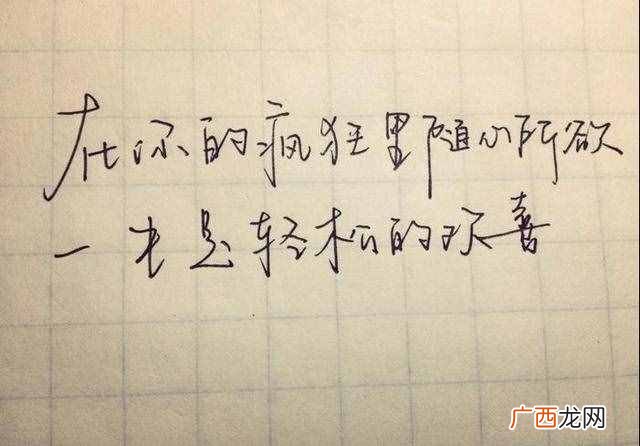 在你的疯狂里随心所欲
一半是轻松的欢喜
广西龙网